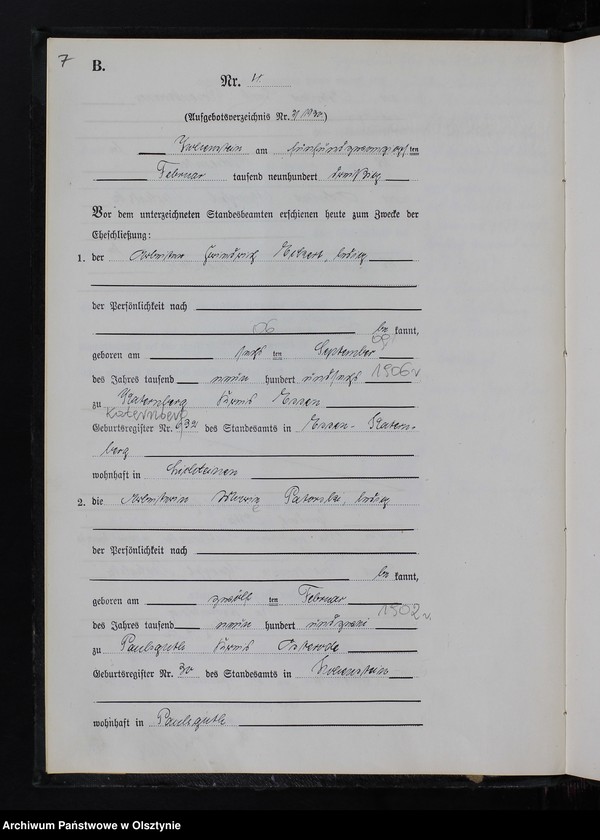 7
B.
Nr. 4.
(Aufgebotsverzeichnis Nr. 2/1930.)
Hohenstein am fünfundzwanzigsten
Februar tausend neunhundert dreißig
Vor dem unterzeichneten Standesbeamten erschienen heute zum Zwecke der
Eheschließung:
1. der Arbeiter Heinrich ledig
der Persönlichkeit nach
06
be kannt,
09
geboren am sechs ten September
des Jahres tausend neun hundert undsechs 1906
zu Katernberg Kreis Essen
Katernberg
Geburtsregister Nr. 632 des Standesamts in Essen-Katern-
berg
wohnhaft in
2. die Arbeiterin Marie ledig
e
der Persönlichkeit nach
be kannt,
geboren am zwölf ten Februar
1902
des Jahres tausend neun hundert undzwei
zu Paulsguth Kreis Osterode
Geburtsregister Nr. 30 des Standesamts in Hohenstein
wohnhaft in Paulsguth
Archiwum Państwowe w Olsztynie